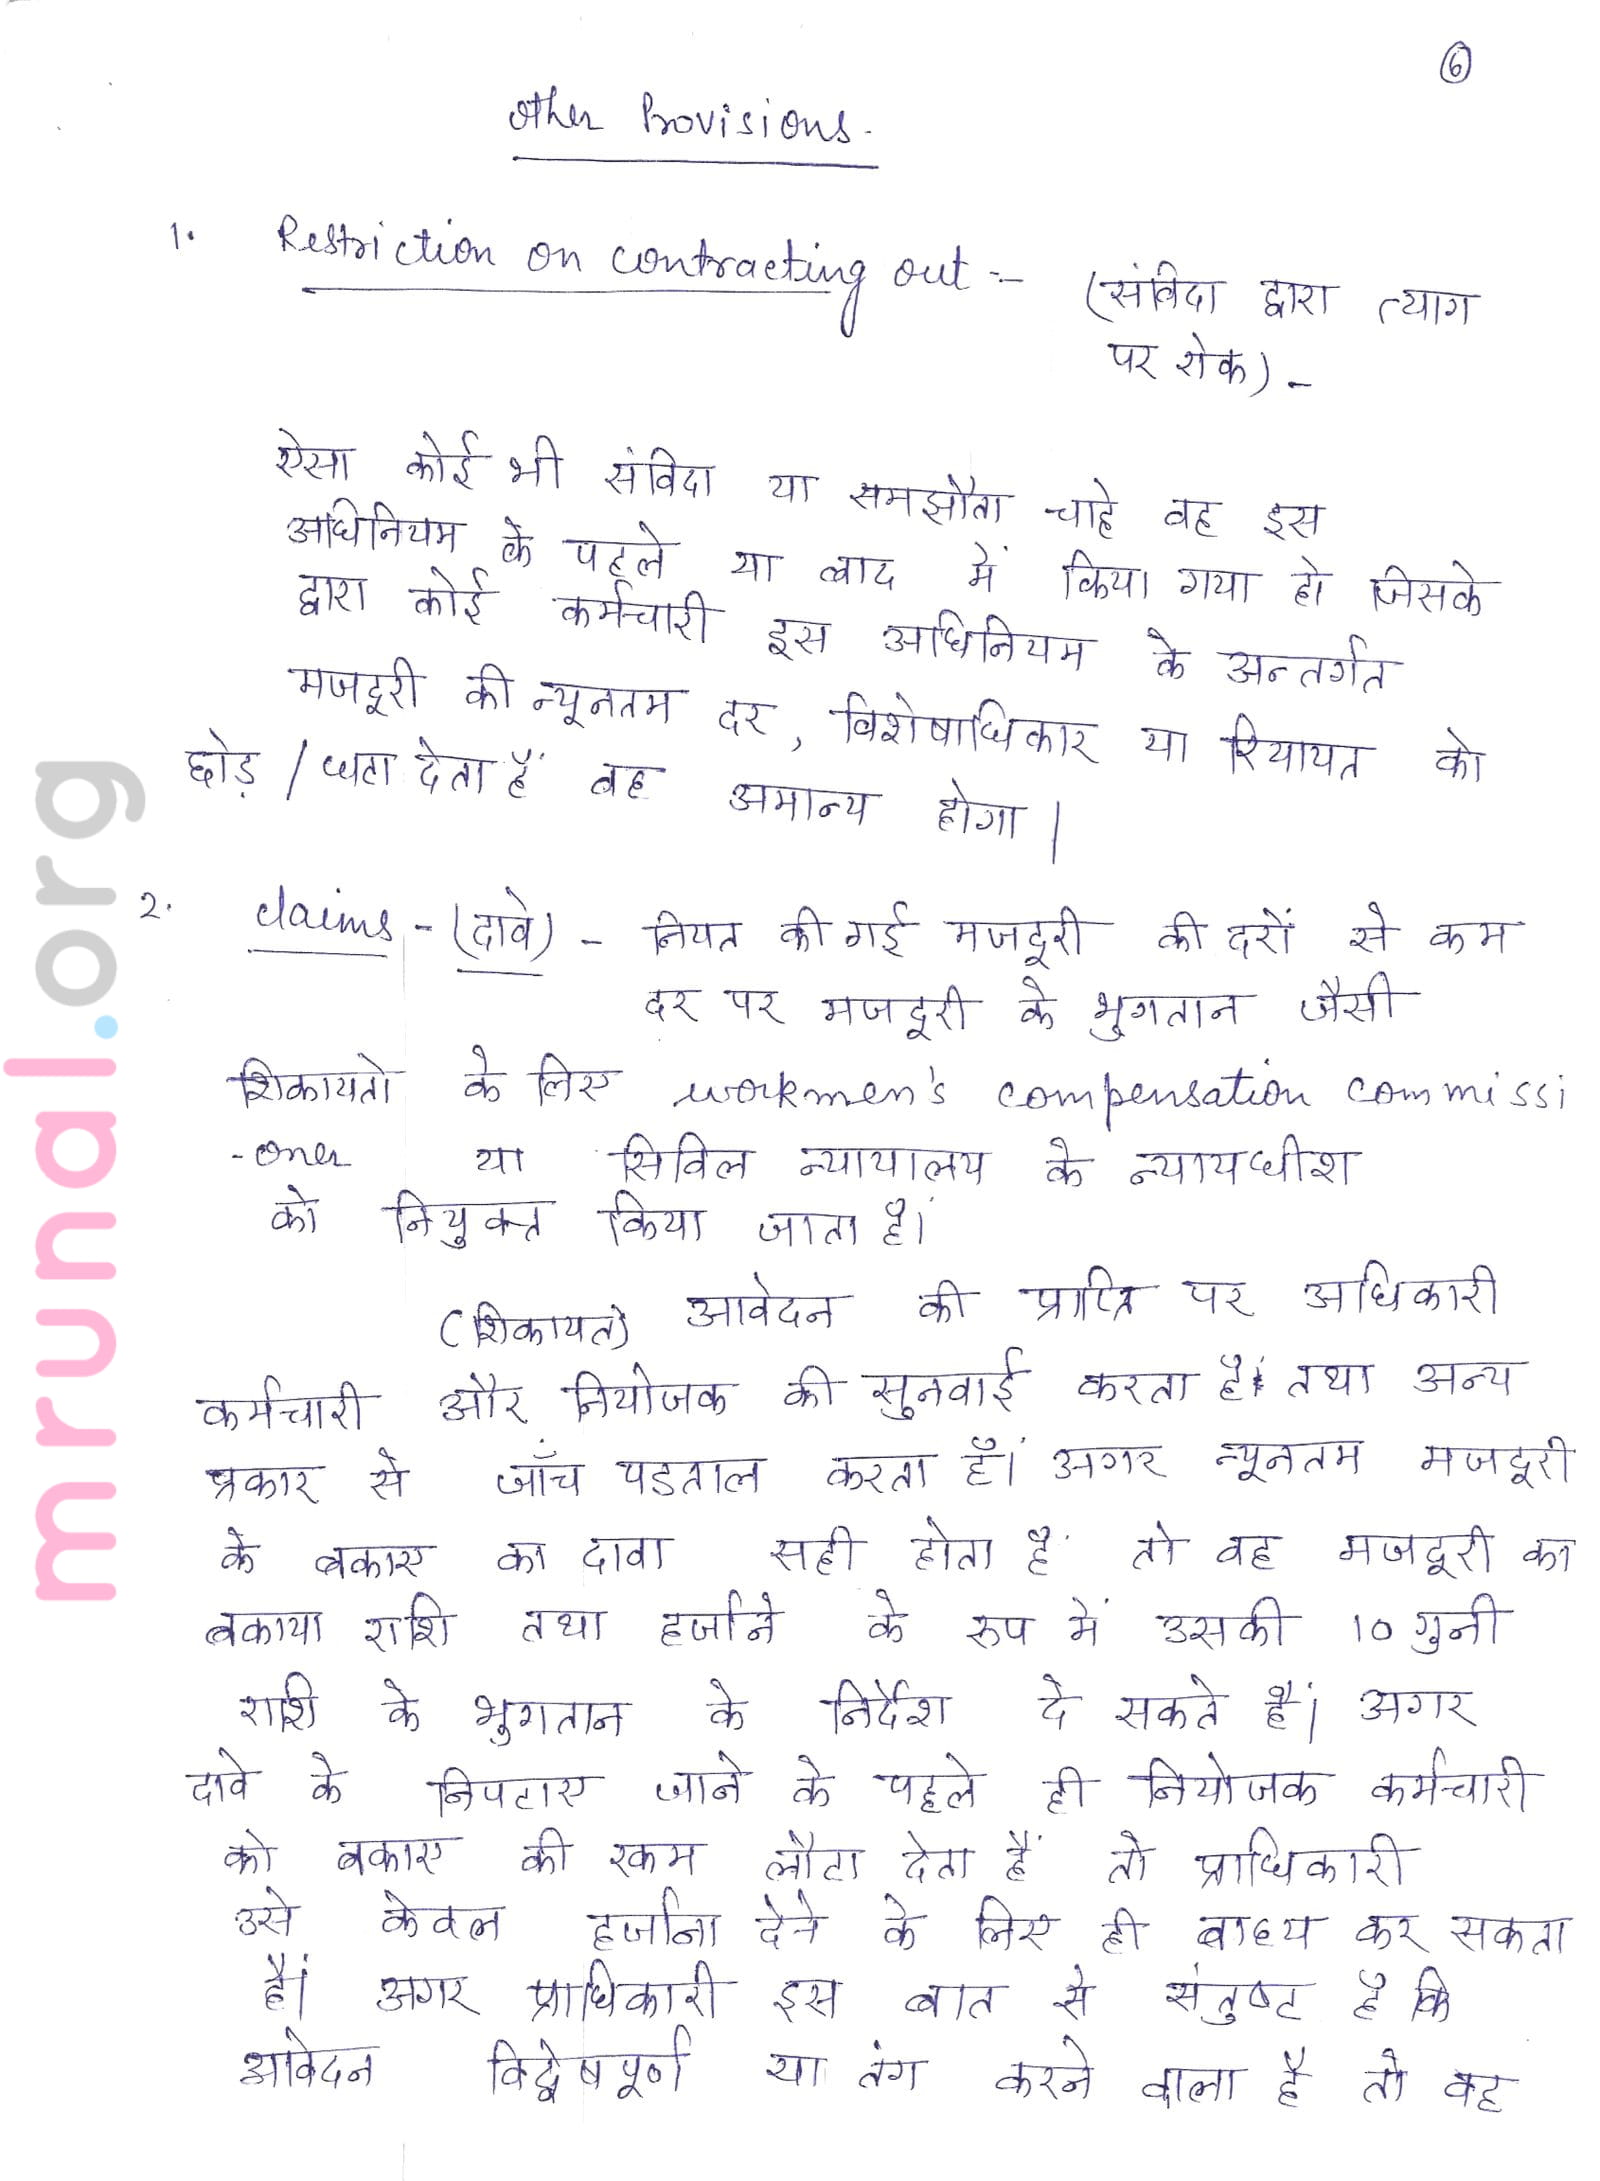 6
Other Provisions.
1. Restriction on contracting out :- (संविदा द्वारा त्याग
पर रोक) -
ऐसा कोई भी संविदा या समझौता चाहे वह इस
अधिनियम के पहले या बाद में किया गया हो जिसके
द्वारा कोई कर्मचारी इस अधिनियम के अन्तर्गत
मजदूरी की न्यूनतम दर, विशेषाधिकार या रियायत को
छोड़ / घटा देता हैं वह अमान्य होगा |
2. claims - (दावे) - नियत की गई मजदूरी की दरों से कम
दर पर मजदूरी के भुगतान जैसी
शिकायतो के लिए workmen's compensation commissi
-oner या सिविल न्यायालय के न्यायधीश
को नियुक्त किया जाता है।
(शिकायत) आवेदन की प्राप्ति पर अधिकारी
कर्मचारी और नियोजक की सुनवाई करता है तथा अन्य
प्रकार से जाँच पडताल करता हैं। अगर न्यूनतम मजदूरी
के बकाए का दावा सही होता है तो वह मजदूरी का
बकाया राशि तथा हर्जाने के रूप में उसकी 10 गुनी
राशि के भुगतान के निर्देश दे सकते हैं। अगर
दावे के निपटाए जाने के पहले ही नियोजक कर्मचारी
को बकाए की रकम लौटा देता हैं तो प्राधिकारी
उसे केवल हर्जाना देने के लिए ही बाध्य कर सकता
हैं। अगर प्राधिकारी इस बात से संतुष्ट है कि
आवेदन विद्वेषपूर्ण या तंग करने वाला है तो वह
mrunal.org